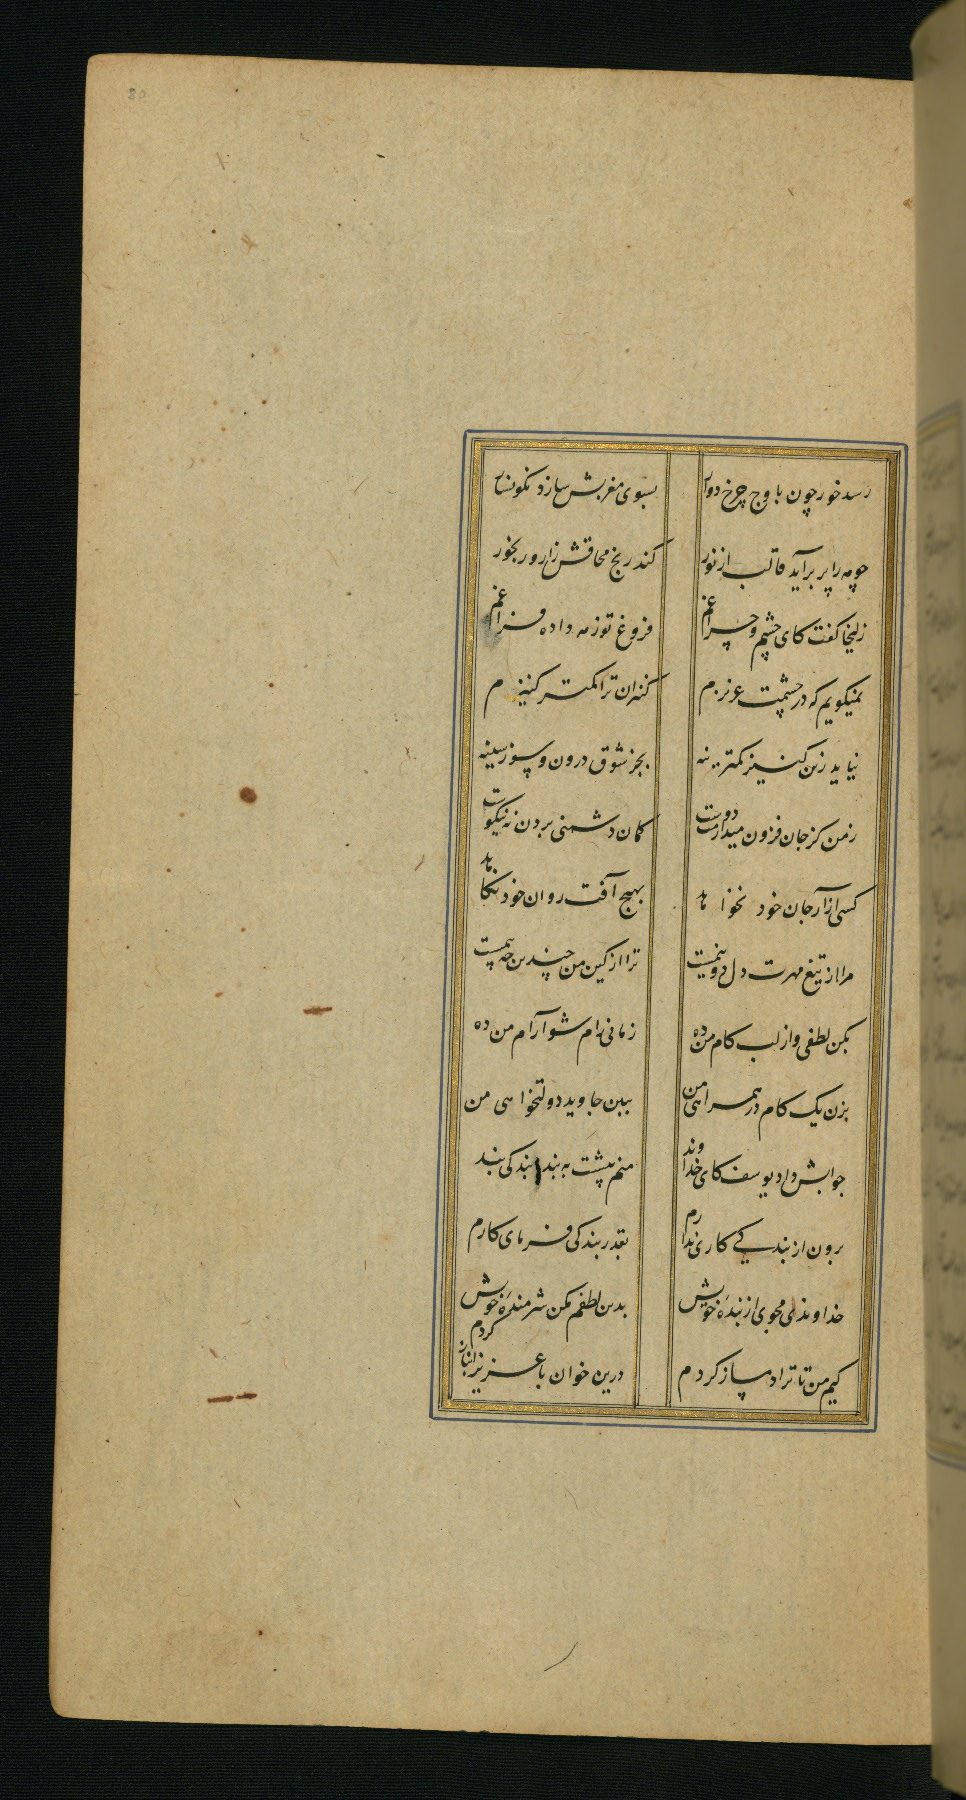 رسد خور چون باوج چرخ دوار بسوی مغربش سازد نکونسار
چو مه را پر برآید قالب از نور کند رنج محاقش زار و رنجور
زلیخا گفت کای چشم و چراغم فروغ تو ز مه داده فراغم
نمیکویم که در چشمت عزیزم کنیزان ترا کمتر کنیزم
نیاید زین کنیز کمترینه بجز شوق درون و سوز سینه
ز من کز جان فزون میدارمت دوست کمان دشمنی بردن نه نیکوست
کسی آزار جان خود نخواهد بهیچ آفت روان خود نکاهد
مرا از تیغ مهرت دل دو نیمست ترا از کین من چندین چه بیمست
بکن لطفی و از لب کام من ده زمانی رام شو آرام من ده
بزن یک کام در همراهی من ببین جاوید دولتخواهی من
جوابش داد یوسف کای خداوند منم پیشت به بند بندکی بند
برون از بندکی کاری ندارم بقدر بندکی فرمای کارم
خداوندی مجوی از بندهٔ خویش بدین لطفم مکن شرمندهٔ خویش
کیم من تا ترا دمساز کردم درین خوان با عزیز انباز کردم